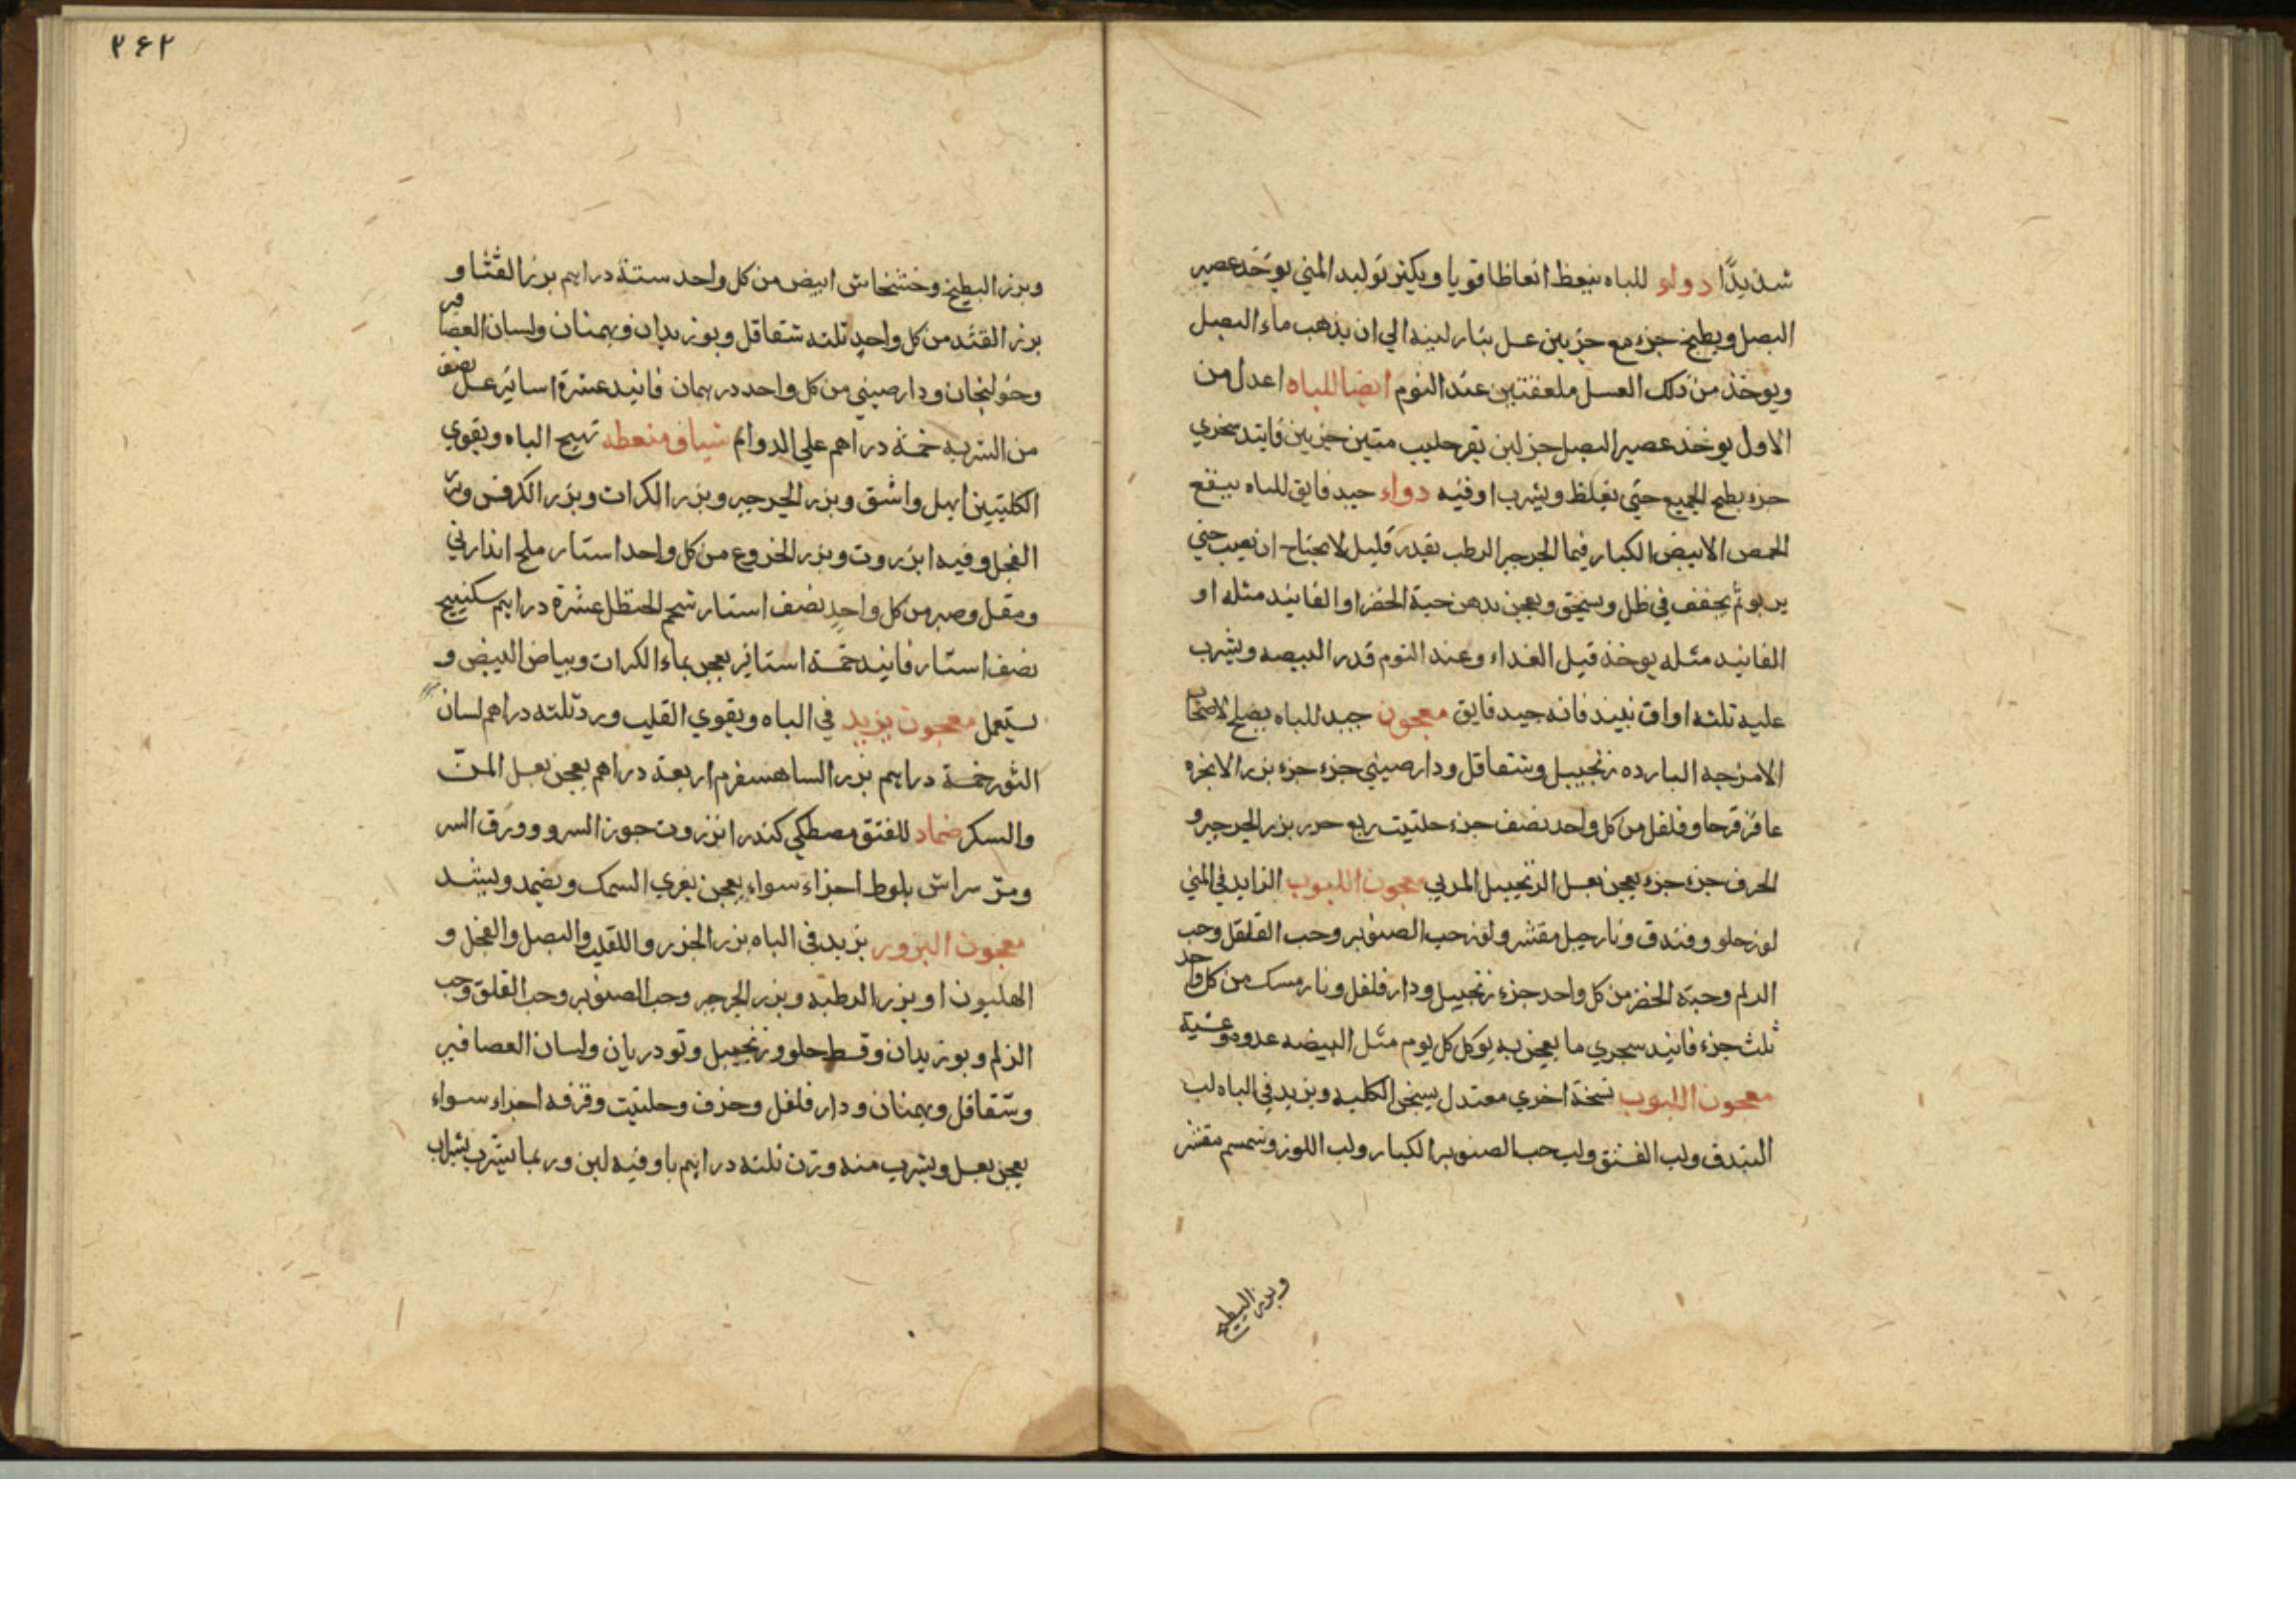 شديدًا دواء للباه ينعظ انعاظا قويا ويكثر توليد المني يوخذ عصير
البصل ويطبخ جزء مع جزيين عسل بنار لينه الي ان يذهب ماء البصل
ويوخذ من ذلك العسل ملعقتين عند النوم ايضا للباه اعدل من
الاول يوخذ عصير البصل جز لبن بقر حليب جزيين فانيد سجزي
جزء يطبخ الجميع حتي يغلظ ويشرب اوقيه دواء جيد فايق للباه ينقع
الحمص الابيض الكبار فيما الجرجير الرطب بقدر قليل لا يحتاج ان يصب حتي
يربو ثم يجفف في ظل ويسحق ويعجن بدهن حبة الخضرا والفانيد مثله او
الفانيد مثله يوخذ قبل الغداء وعند النوم قدر البيضه ويشرب
عليه ثلثه اواق نبيذ فانه جيد فايق معجون جيد للباه يصلح لاصحاب
الامزجه البارده زنجبيل وشقاقل ودارصيني جزء جزء بزر الانجره
عاقرقرحا وفلفل من كل واحد نصف جزء حلتيت ربع جزء بزر الجرجير و
الحرف جزء جزء يعجن بعسل الزنجبيل المربي معجون اللبوب الزايد في المني
لوز حلو وفندق ونارجيل مقشر ولوز حب الصنوبر وحب القلقل وحب
الزلم وحبة الخضر من كل واحد جزء زنجبيل ودارفلفل ونارمسك من كل واحد
ثلث جزء فانيد سجزي ما يعجن به يوكل كل يوم مثل البيضه غدوه وعشية
معجون اللبوب نسخة اخري معتدل يسخن الكليه ويزيد في الباه لب
البندق ولب الفستق ولب حب الصنوبر الكبار ولب اللوز وسمسم مقشر
وبزر البطيخ
٢۶٢
وبزر البطيخ وخشخاش ابيض من كل واحد ستة دراهم بزر القثا و
بزر القثد من كل واحد ثلثه شقاقل وبوزيدان وبهمنان ولسان العصافير
وخولنجان ودارصيني من كل واحد درهمان فانيد عشرة اساتير عسل نصف
من الشربه خمسة دراهم علي الدوام شياف منعظه تهيج الباه ويقوي
الكليتين ابهل واشق وبزر الجرجير وبزر الكراث وبزر الكرفس وبزر
الفجل وفيه انزروت وبزر الخروع من كل واحد استار ملح اندراني
ومقل وصبر من كل واحد نصف استار شحم الحنظل عشرة دراهم سكبينج
نصف استار فانيد خمسة اساتير يعجن بماء الكراث وبياض البيض و
يستعمل معجون يزيد في الباه ويقوي القلب ورد ثلثه دراهم لسان
الثور خمسة دراهم بزر الساهسفرم اربعة دراهم يعجن بعسل المن
والسكر ضماد للفتق مصطكي كندر انزروت جوز السرو وورق السر
ومر سراش بلوط اجزاء سواء يعجن بغري السمك ويضمد ويشد
معجون البزور يزيد في الباه بزر الجزر واللفت والبصل والفجل و
الهليون او بزر الرطبه وبزر الجرجر وحب الصنوبر وحب القلق وحب
الزلم وبوزيدان وقسط حلو وزنجبيل وتودريان ولسان العصافير
وشقاقل وبهمنان ودارفلفل وحرف وحلتيت وقرفه اجزاء سواء
يعجن بعسل ويشرب منه وزن ثلثه دراهم باوقيه لبن وربما يشرب بشراب